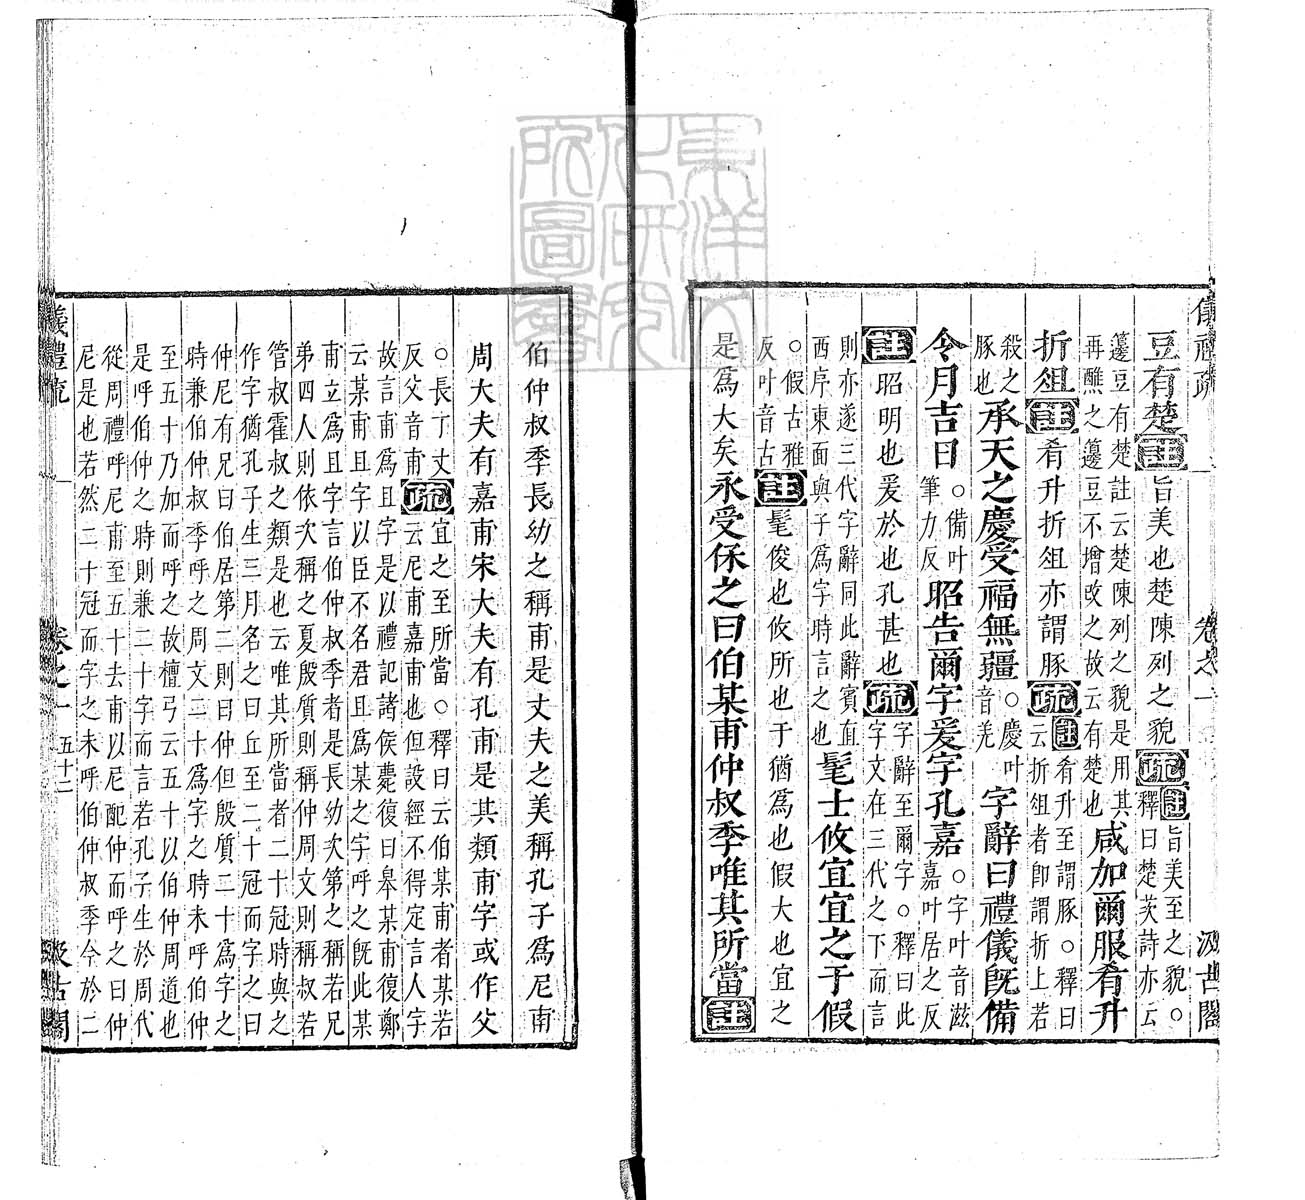 儀禮疏 卷之一 汲古閣
豆有楚註旨美也楚陳列之貌疏註旨美至之貌。釋曰楚茨詩亦云
籩豆有楚註云楚陳列之貌是用其
再醮之籩豆不增改之故云有楚也咸加爾服肴升
折俎註肴升折俎亦謂豚疏註肴升至謂豚。釋曰
云折俎者卽謂折上若
殺之
豚也承天之慶受福無疆。慶叶
音羌字辭曰禮儀既備
令月吉日。備叶
筆力反昭告爾字爰字孔嘉。字叶音滋
嘉叶居之反
註昭明也爰於也孔甚也疏字辭至爾字。釋曰此
字文在三代之下而言
則亦遂三代字辭同此辭賓直
西序東面與子爲字時言之也髦士攸宜宜之于假
。假古雅
反叶音古註髦俊也攸所也于猶爲也假大也宜之
是爲大矣永受保之曰伯某甫仲叔季唯其所當註
伯仲叔季長幼之稱甫是丈夫之美稱孔子爲尼甫
周大夫有嘉甫宋大夫有孔甫是其類甫字或作父
。長丁丈
反父音甫疏宜之至所當。釋曰云伯某甫者某若
云尼甫嘉甫也但設經不得定言人字
故言甫爲且字是以禮記諸侯薨復曰皋某甫復鄭
云某甫且字以臣不名君且爲某之字呼之既此某
甫立爲且字言伯仲叔季者是長幼次第之稱若兄
弟四人則依次稱之夏殷質則稱仲周文則稱叔若
管叔霍叔之類是也云唯其所當者二十冠時與之
作字猶孔子生三月名之曰丘至二十冠而字之曰
仲尼有兄曰伯居第二則曰仲但殷質二十爲字之
時兼伯仲叔季呼之周文二十爲字之時未呼伯仲
至五十乃加而呼之故檀弓云五十以伯仲周道也
是呼伯仲之時則兼二十字而言若孔子生於周代
從周禮呼尼甫至五十去甫以尼配仲而呼之曰仲
尼是也若然二十冠而字之未呼伯仲叔季今於二
儀禮疏 卷之一 五十三 汲古閣